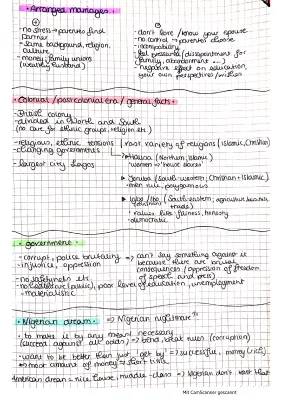 • Arranged marriages
⊕
- no stress → parents find partner
- same background, religion, culture
- money, family unions (wealthy husband)
⊖
- don't love / know your spouse
- no control → parents choose
- incompatibility
- feel pressure / disappointment for (family, abandonment ...)
- negative effect on education, your own perspectives / wishes
• Colonial / postcolonial era / general facts
- British colony
- divided in North and South
(no care for ethnic groups, religion etc.)
- religious, ethnic tensions
- changing governments
- largest city Lagos
vast variety of religions (Islamic, Christian)
→ Hausa (Northern; Islamic)
- women = house slaves
→ Yoruba (South-western; Christian + Islamic)
- men rule, polygamous
→ Igbo / Ibo (South-eastern; agriculture
- values like fairness, honesty
- democratic
• government
- corrupt, police brutality
- injustice, oppression
→ can't say something against is because there are brutal consequences / oppression of freedom of speech and press
- no safetyness etc.
poor level of education, unemployment
- materialistic
• Nigerian dream ⇒ Nigerian nightmare?
- to make it by any means necessary
(success against all odds) → bend, break rules (corruption)
- want to be better than just "get by" → successful, money (rich)
American dream = nice house, middle-class → Nigerian don't want that
Mit CamScanner gescannt